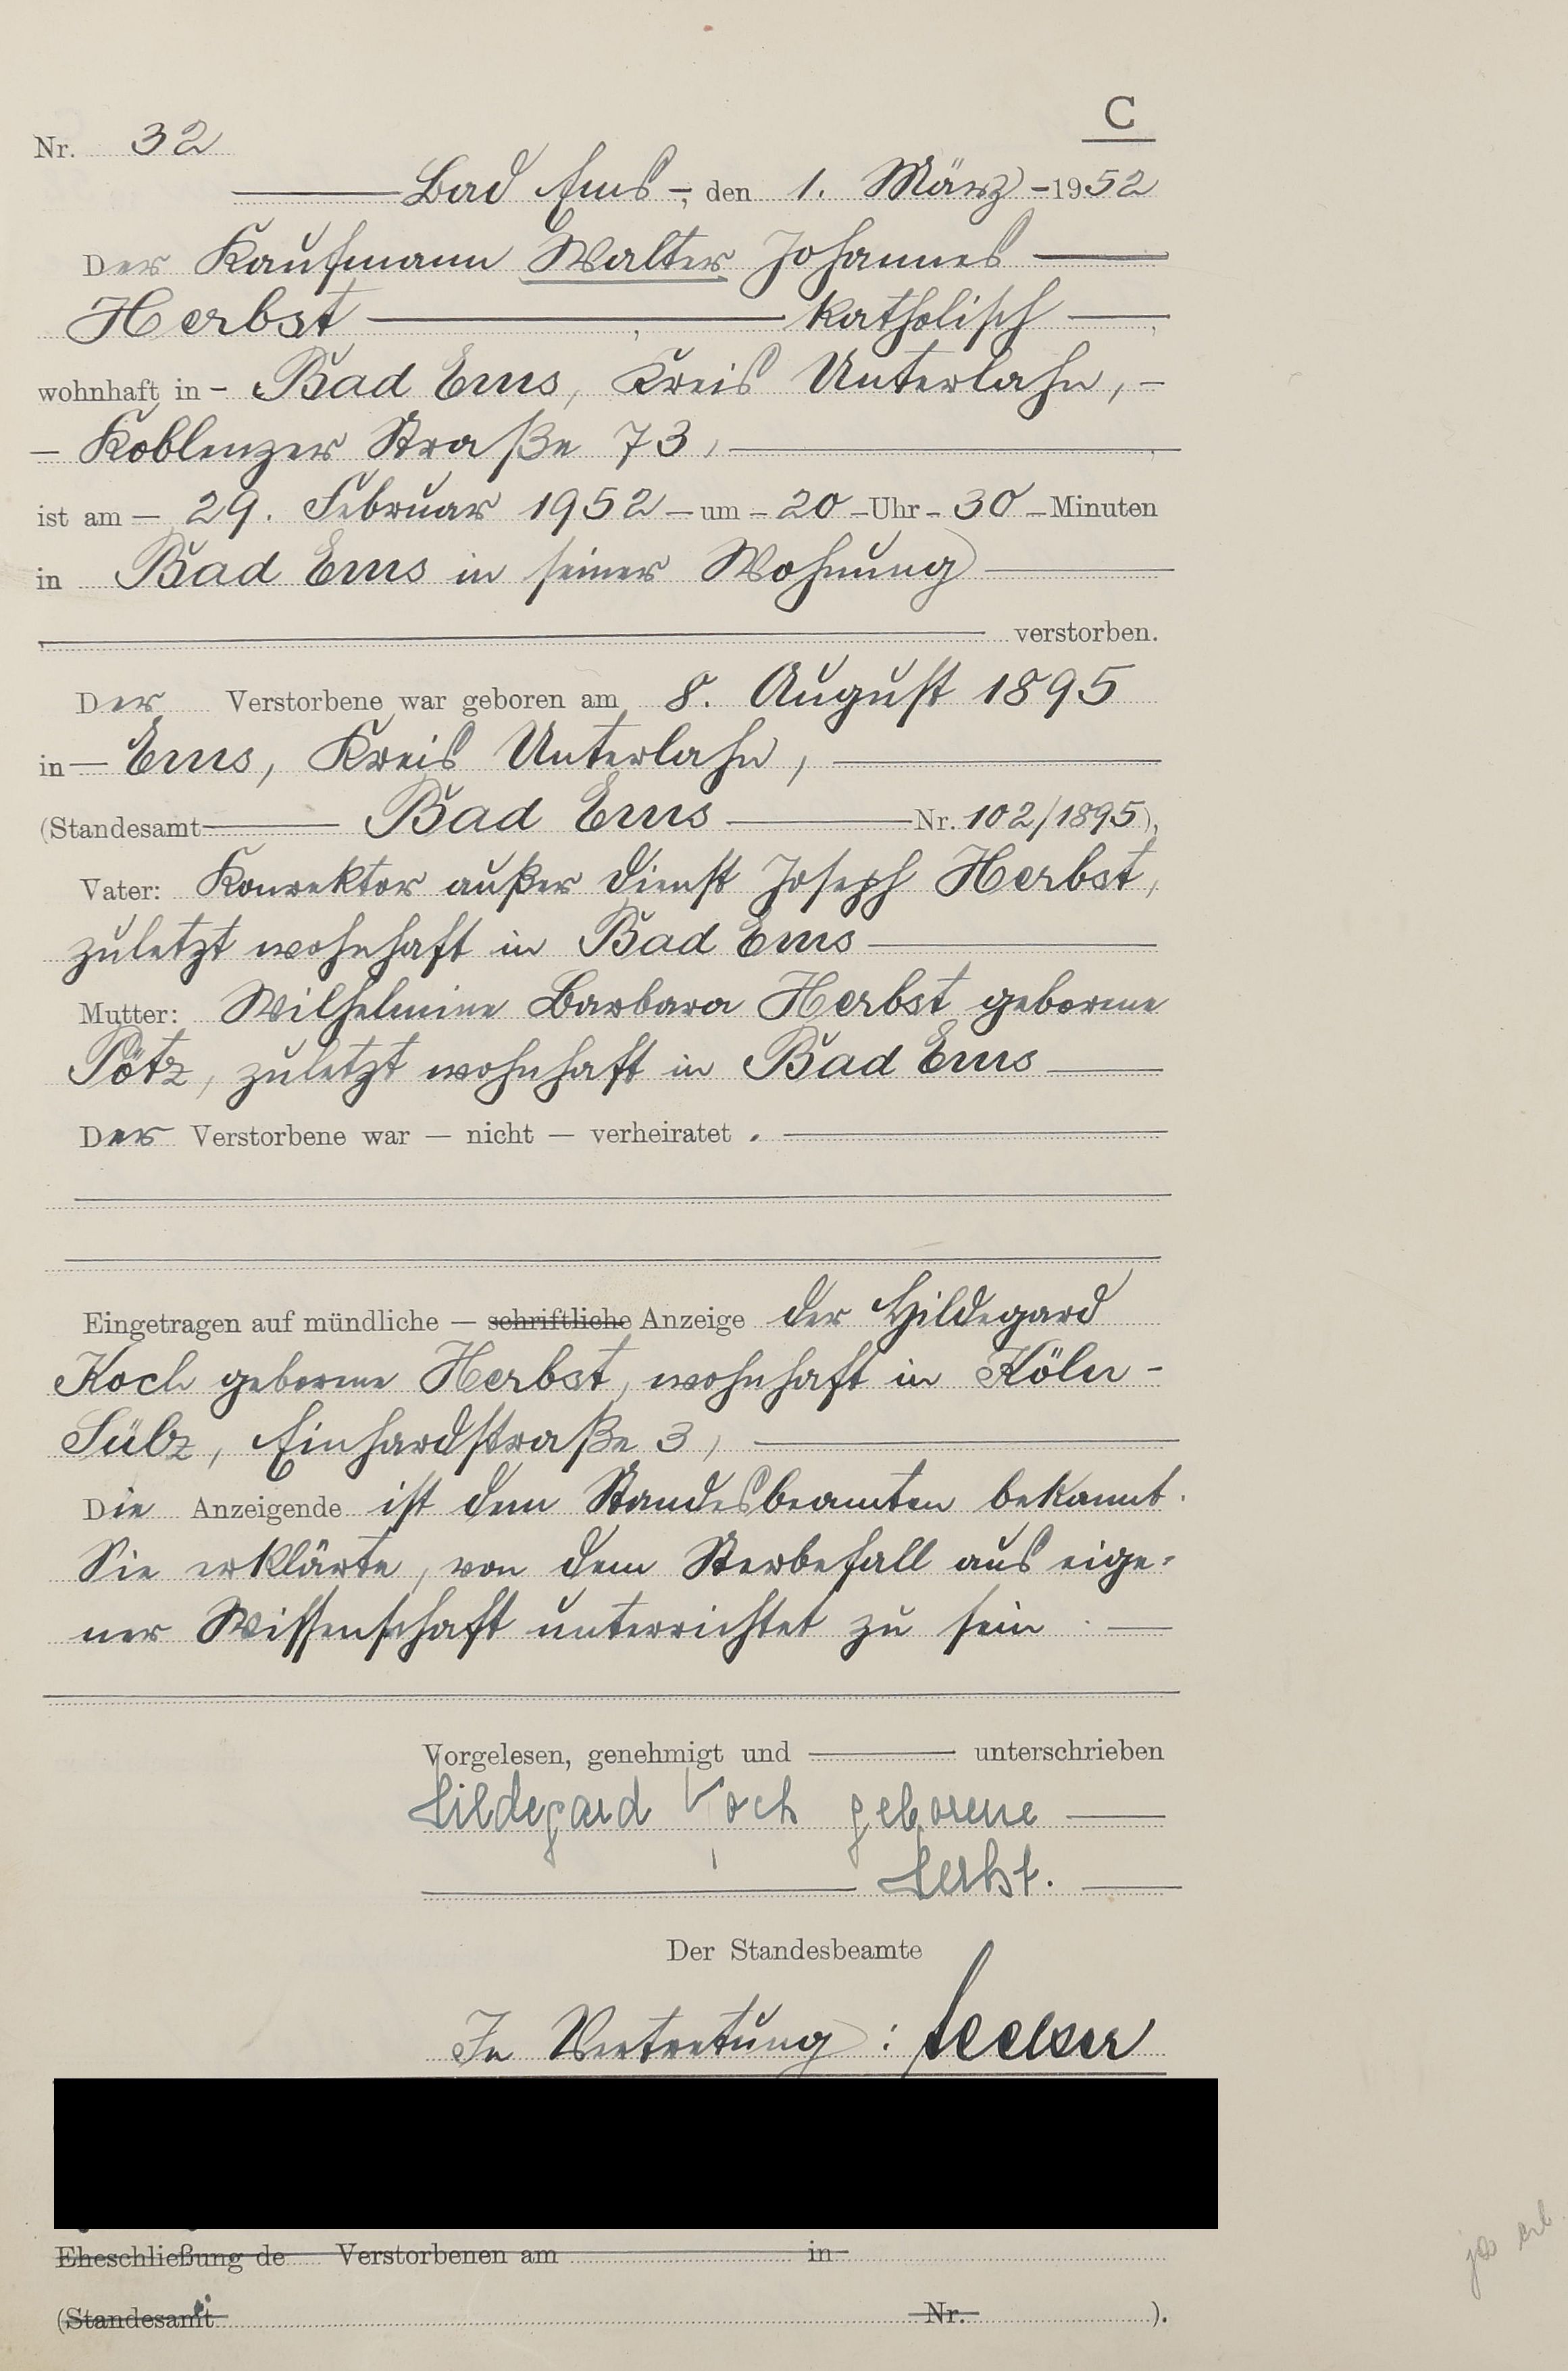 C
Nr. 32
Bad Ems, den 1. März 1952
Der Kaufmann Walter Johannes
Herbst, katholisch,
wohnhaft in Bad Ems, Kreis Unterlahn,
Koblenzer Straße 73,
ist am 29. Februar 1952 um 20 Uhr 30 Minuten
in Bad Ems in seiner Wohnung
verstorben.
Der Verstorbene war geboren am 8. August 1895
in Ems, Kreis Unterlahn,
(Standesamt Bad Ems Nr. 102/1895),
Vater: Konrektor außer Dienst Joseph Herbst,
zuletzt wohnhaft in Bad Ems
Mutter: Wilhelmine Barbara Herbst geborene
Pötz, zuletzt wohnhaft in Bad Ems
Der Verstorbene war — nicht — verheiratet.
Eingetragen auf mündliche — schriftliche Anzeige der Hildegard
Koch geborene Herbst, wohnhaft in Köln-
Sülz, Einhardstraße 3,
Die Anzeigende ist dem Standesbeamten bekannt.
Sie erklärte, von dem Sterbefall aus eige-
ner Wissenschaft unterrichtet zu sein.
Vorgelesen, genehmigt und unterschrieben
Hildegard Koch geborene
Herbst.
Der Standesbeamte
In Vertretung:
Eheschließung de Verstorbenen am in
(Standesamt Nr. ).